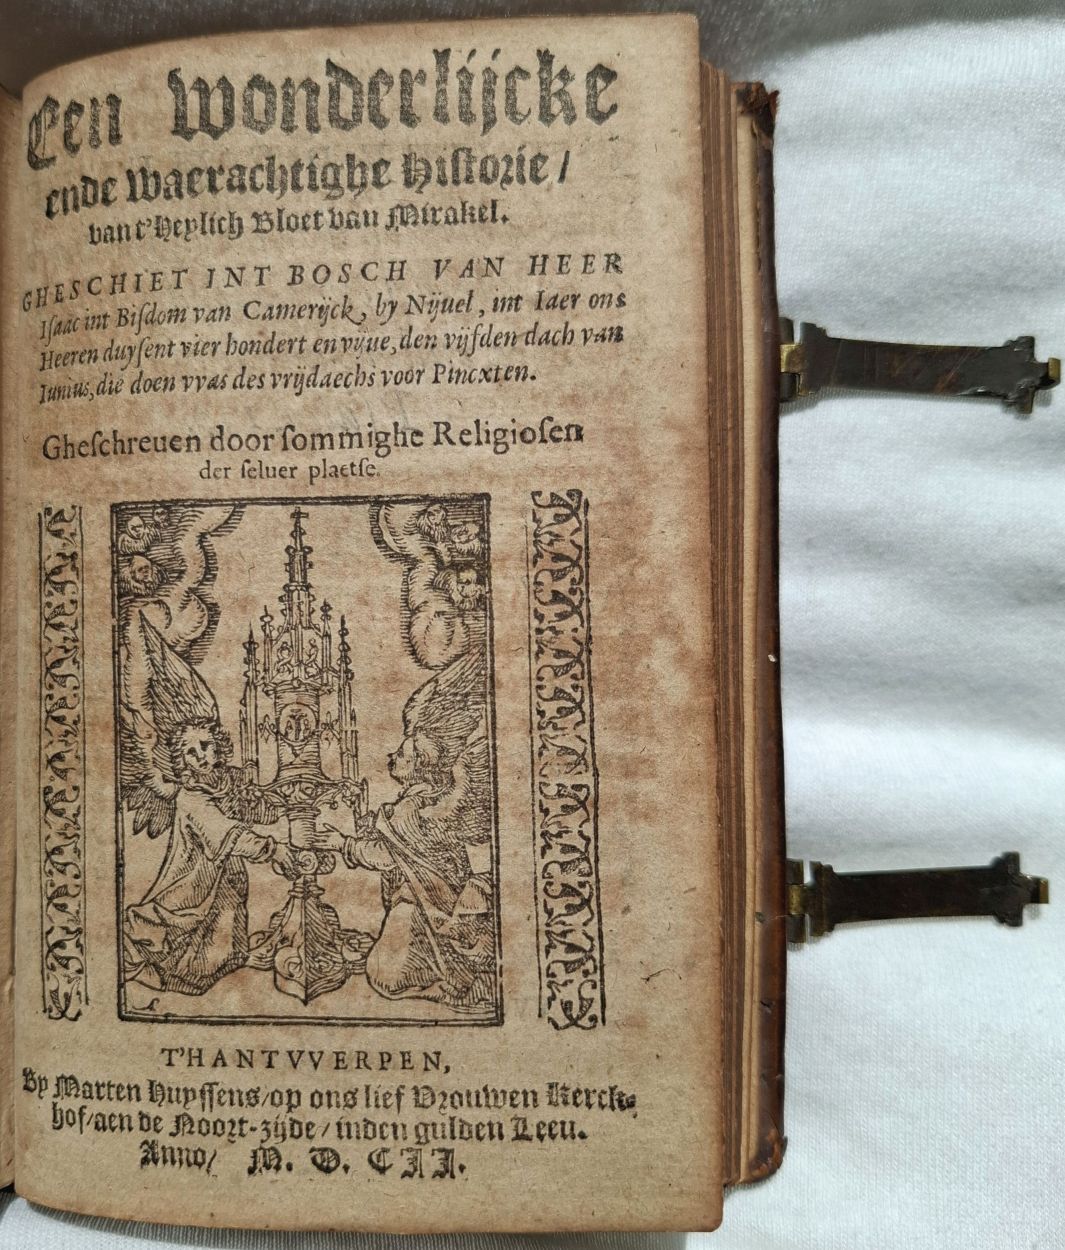 Een wonderlijcke
ende waerachtighe Historie/
van t'Heylich Bloet van Mirakel.
GHESCHIET INT BOSCH VAN HEER
Isaac int Bisdom van Camerijck, by Nijuel, int Iaer ons
Heeren duysent vier hondert en vijue, den vijfden dach van
Iunius, die doen vvas des vrijdaechs voor Pincxten.
Gheschreuen door sommighe Religiosen
der seluer plaetse.
T'HANTVVERPEN,
By Marten Huyssens/op ons lief Vrouwen Kerck-
hof/aen de Noort-zijde/inden gulden Leeu.
Anno/ M. D. CII.